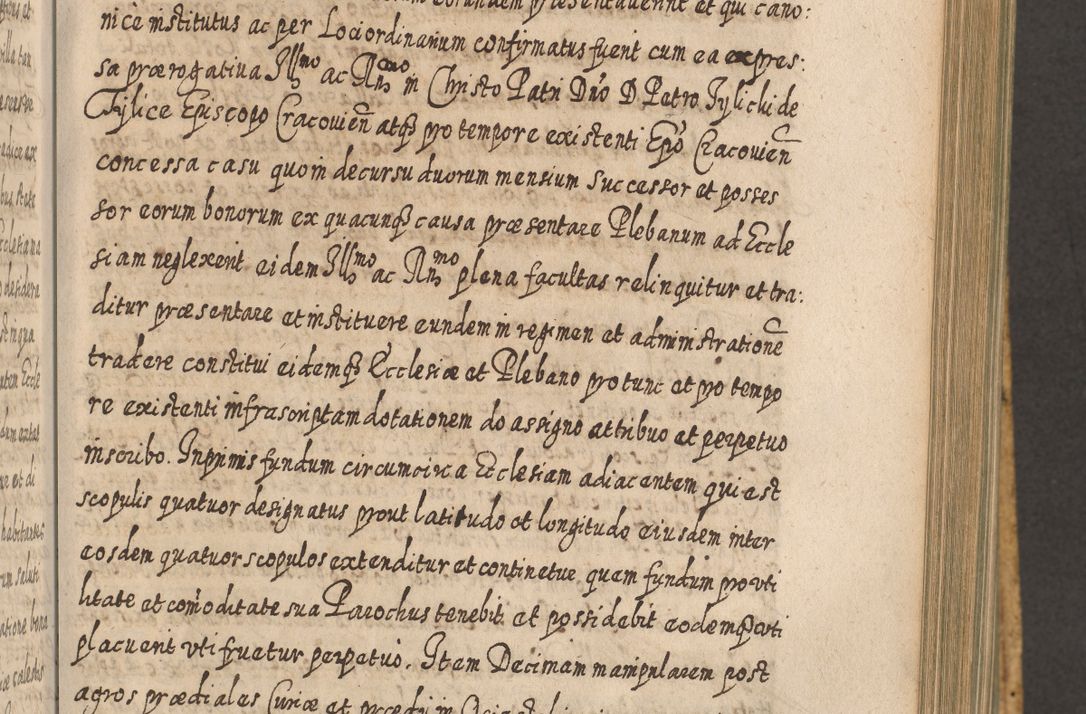 eorundem præsentaverint et qui cano:
nice institutus ac per Lociordinarium confirmatus fuerit cum ea expres:
sa prærogativa Illmo ac Rndmo in Christo Patri Dno D Petro Tylicki de
Tylice Episcopo Cracovien atqz pro tempore existenti Epo Cracovien
concessa casu quo in decursu duorum mensium Successor et posses
sor eorum bonorum ex quacunqz causa præsentare Plebanum ad Eccle
siam neglexerit eidem Illmo ac Rndmo plena facultas relinquitur et tra:
ditur præsentare et instituere eundem in regimen et administratione
tradere constitui eidemqz Ecclesiæ et Plebano pro tunc et pro tempo
re existenti infrascriptam dotationem do assigno attribuo et perpetuo
inscribo. Inprimis fundum circumcirca Ecclesiam adiacentem qui est
scopulis quatuor designatus prout latitudo et longitudo eiusdem inter
eosdem quatuor scopulos extenditur et continetur quem fundum pro vti
litate et comoditate sua Parochus tenebit et possidebit eodemqz vti
placuerit vti fruetur perpetuo. Item Decimam manipularem post
agros prædiales Curiæ et prædij in